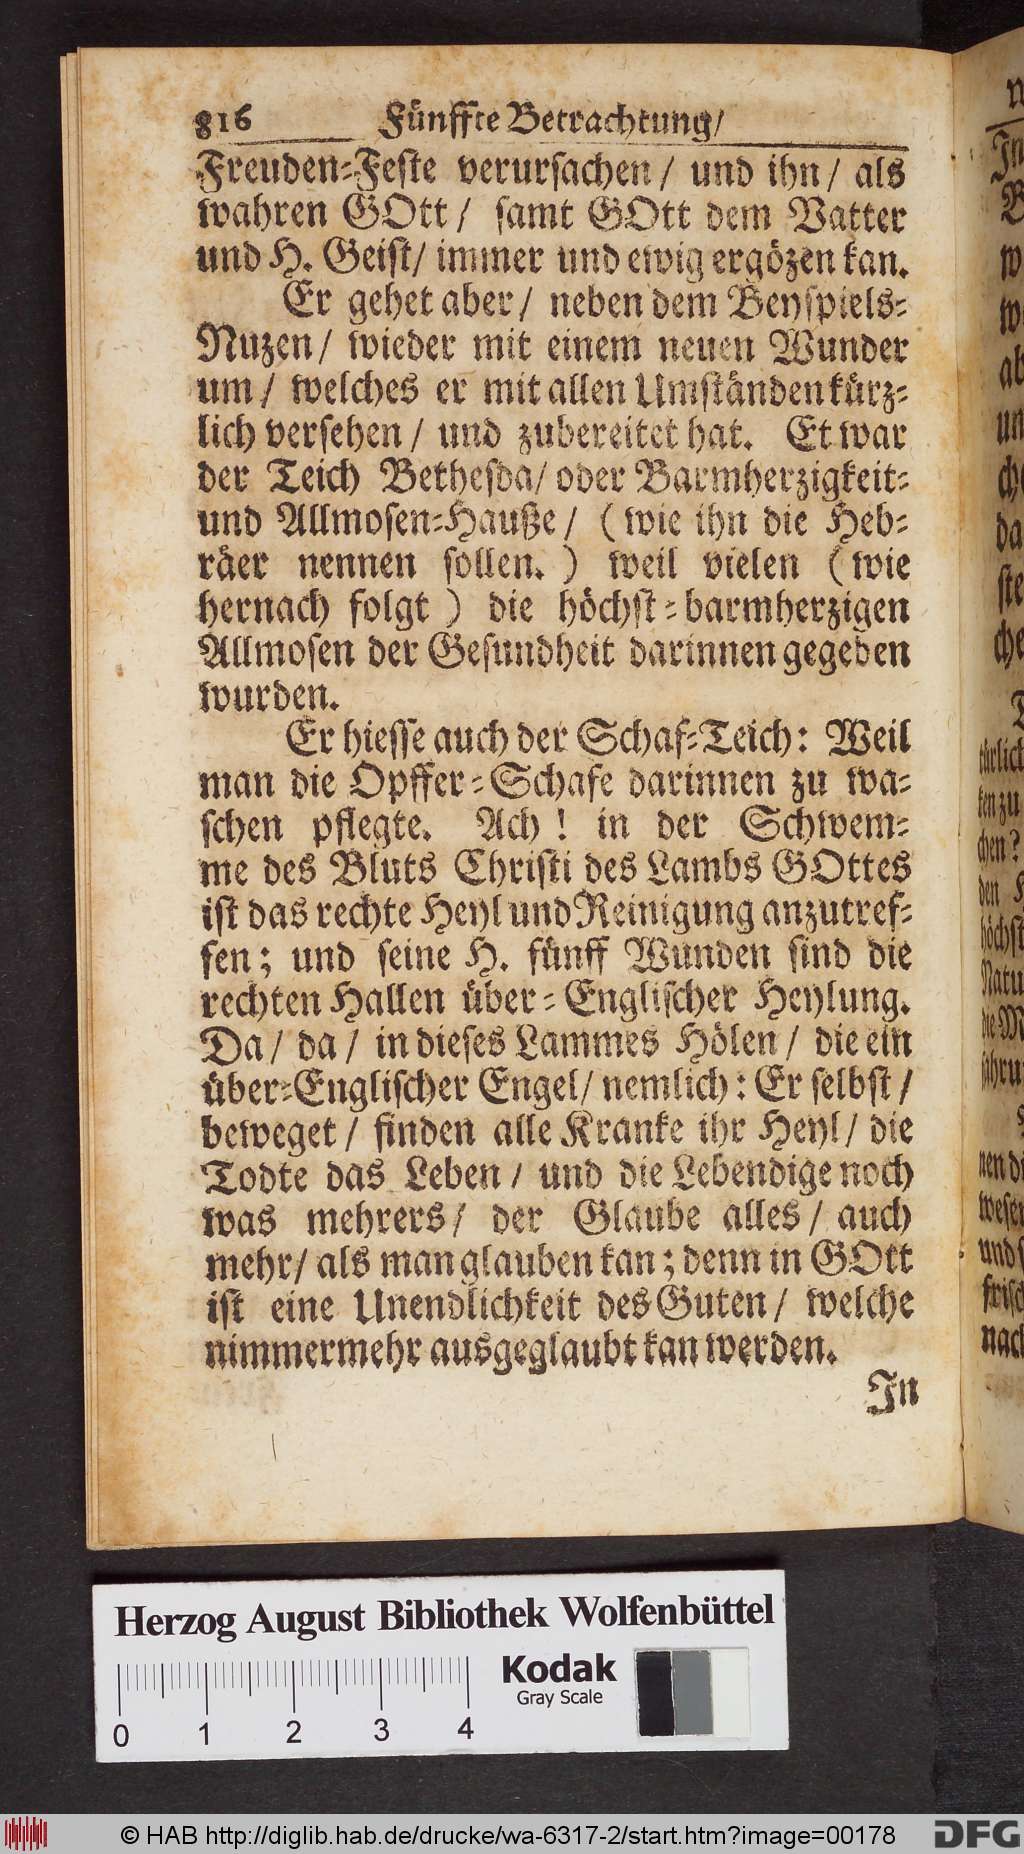 816 Fünffte Betrachtung/
Freuden-Feste verursachen / und ihn / als
wahren GOtt / samt GOtt dem Vatter
und H. Geist/ immer und ewig ergözen kan.
Er gehet aber / neben dem Beyspiels-
Nuzen / wieder mit einem neuen Wunder
um / welches er mit allen Umständen kürz-
lich versehen / und zubereitet hat. Et war
der Teich Bethesda/ oder Barmherzigkeit-
und Allmosen-Hauße / (wie ihn die Heb-
räer nennen sollen.) weil vielen (wie
hernach folgt) die höchst-barmherzigen
Allmosen der Gesundheit darinnen gegeben
wurden.
Er hiesse auch der Schaf-Teich: Weil
man die Opffer-Schafe darinnen zu wa-
schen pflegte. Ach! in der Schwem-
me des Bluts Christi des Lambs GOttes
ist das rechte Heyl und Reinigung anzutref-
fen; und seine H. fünff Wunden sind die
rechten Hallen über-Englischer Heylung.
Da / da / in dieses Lammes Hölen / die ein
über-Englischer Engel / nemlich: Er selbst /
beweget / finden alle Kranke ihr Heyl / die
Todte das Leben / und die Lebendige noch
was mehrers / der Glaube alles / auch
mehr / als man glauben kan; denn in GOtt
ist eine Unendlichkeit des Guten / welche
nimmermehr ausgeglaubt kan werden.
In
Herzog August Bibliothek Wolfenbüttel
Kodak
Gray Scale
0 1 2 3 4
© HAB http://diglib.hab.de/drucke/wa-6317-2/start.htm?image=00178
DFG